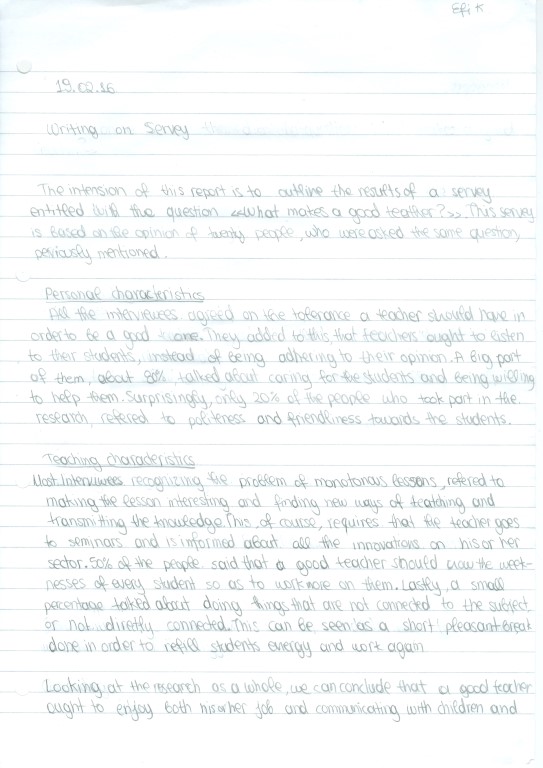 Efi K
19.02.16
Writing on Servey
The intension of this report is to outline the results of a servey
entitled with the question «What makes a good teather?». This servey
is based on the opinion of twenty people, who were asked the same question,
peviously mentioned.
Personal characteristics
All the interviewees agreed on the tolerance a teacher should have in
order to be a good one. They added to this, that teachers ought to listen
to their students, instead of being adhering to their opinion. A big part
of them, about 80% talked about caring for the students and being willing
to help them. Surprisingly, only 20% of the people who took part in the
research, refered to politeness and friendliness towards the students.
Teaching characteristics
Most interviewees recognizing the problem of monotonous lessons, refered to
making the lesson interesting and finding new ways of teatching and
transmitting the knowledge. This, of course, requires that the teacher goes
to seminars and is informed about all the innovations on his or her
sector. 50% of the people said that a good teacher should know the week-
nesses of every student so as to work more on them. Lastly, a small
pecentage talked about doing things that are not connected to the subject
or not directly connected. This can be seen as a short pleasant break
done in order to refill students energy and work again
Looking at the research as a whole, we can conclude that a good teacher
ought to enjoy both his or her job and communicating with children and